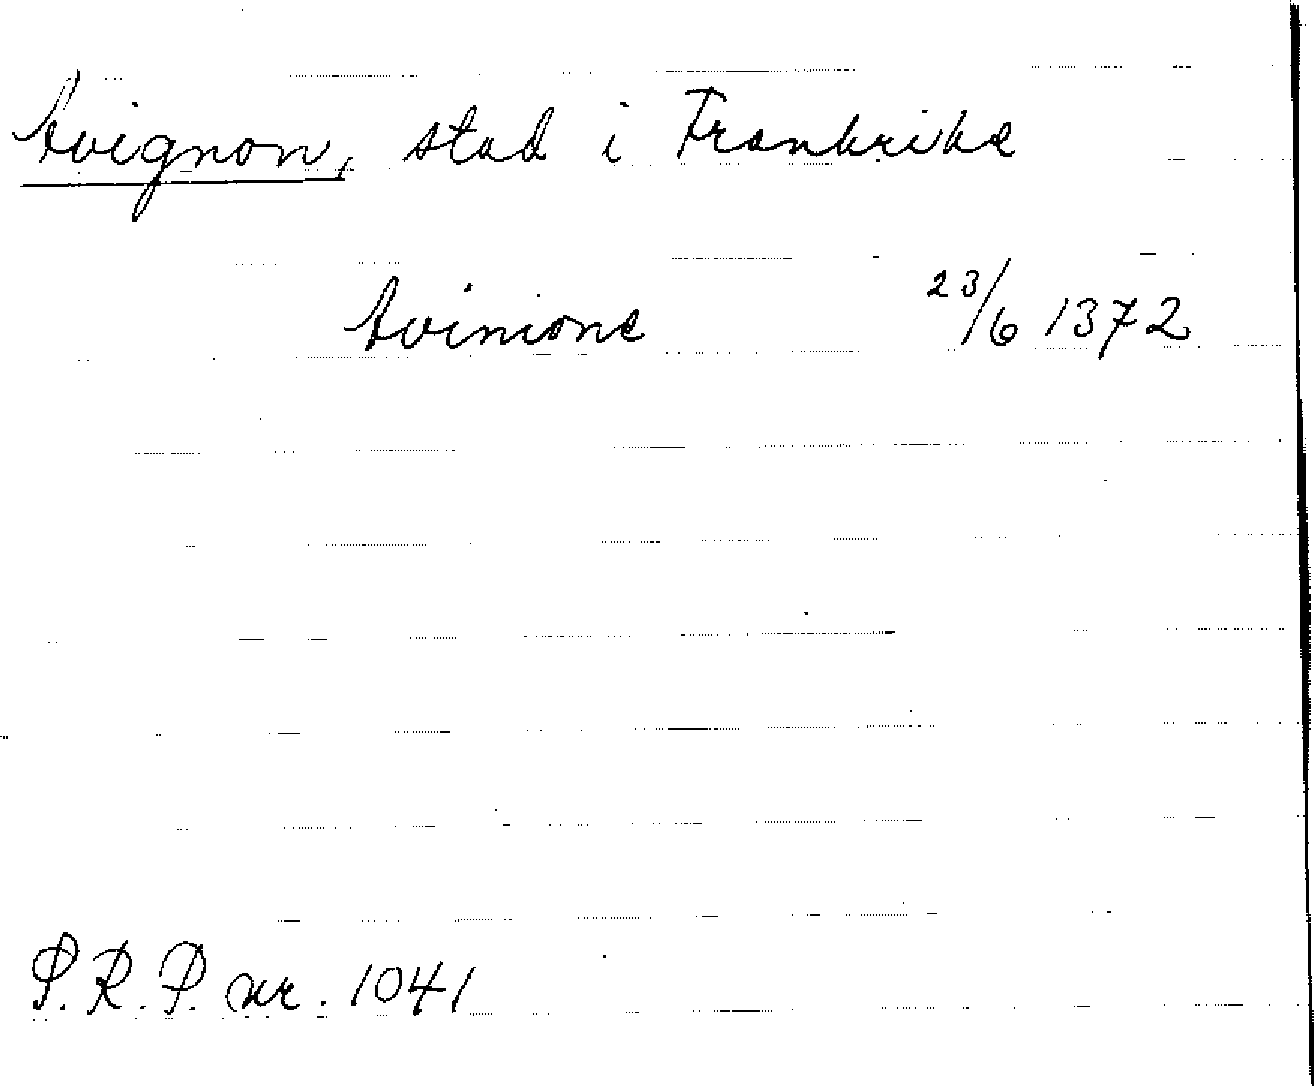 Avignon, stad i Frankrike
Avinione 23/6 1372
S.R.P. nr. 1041